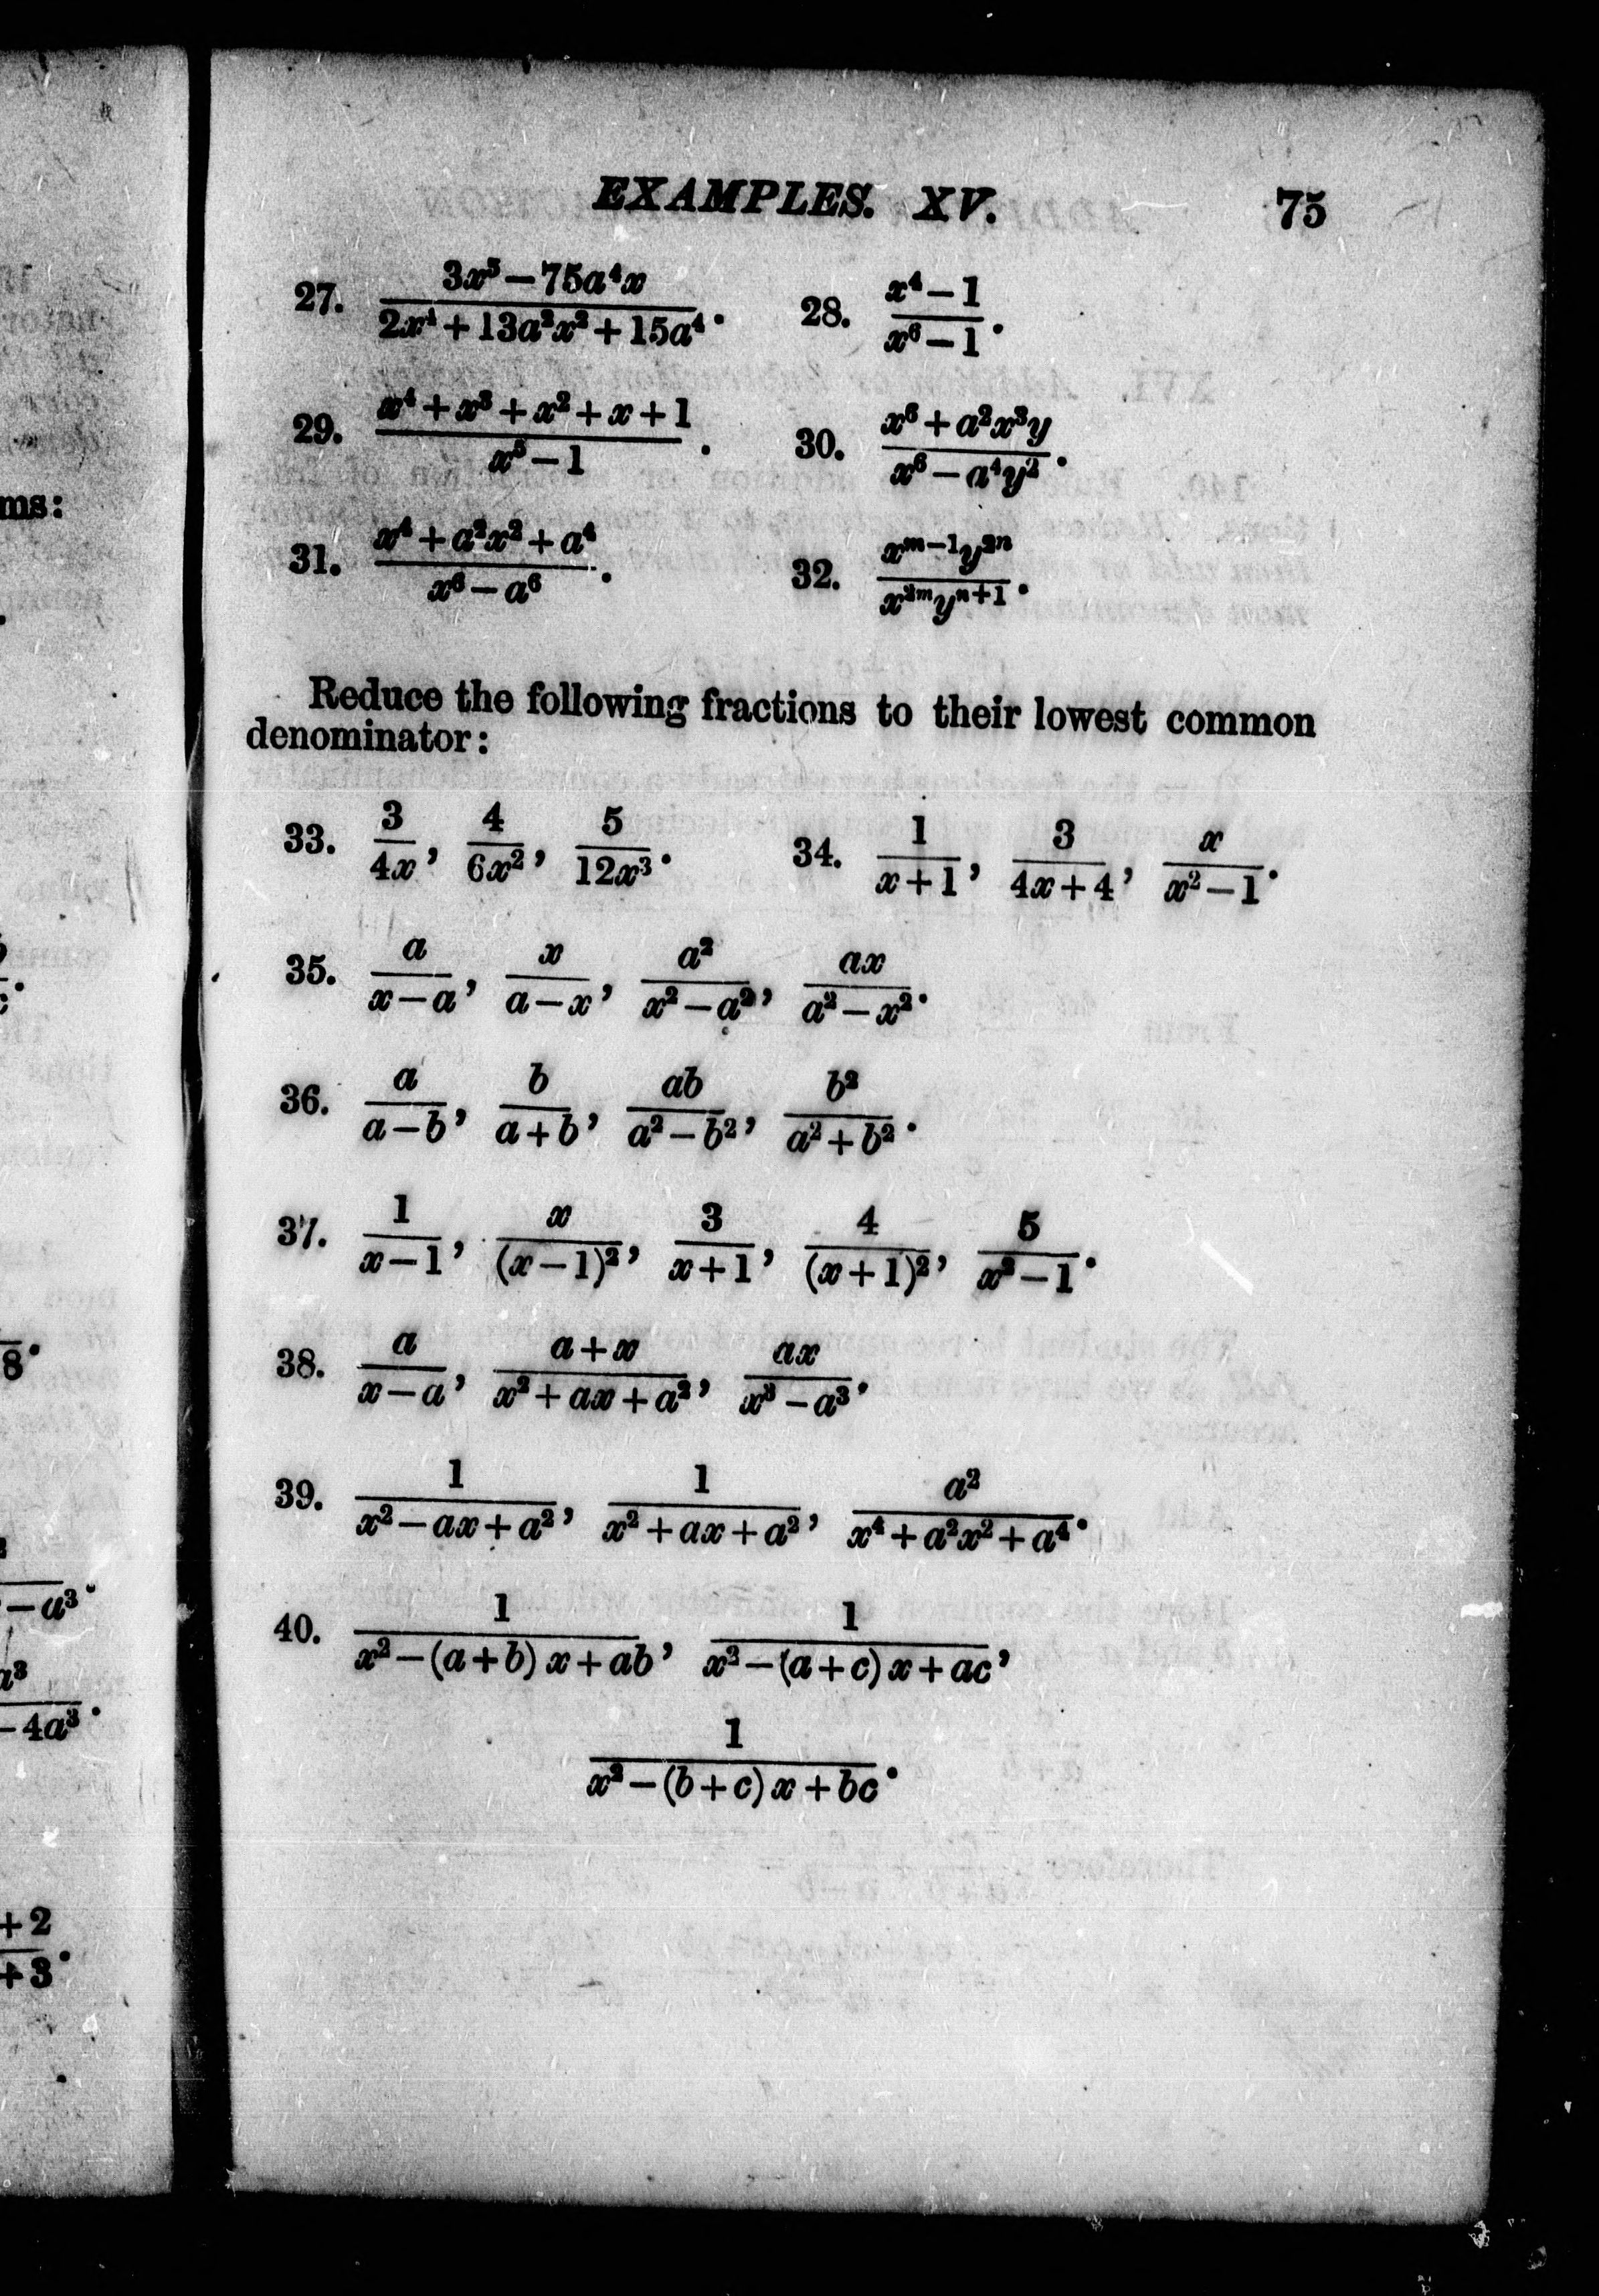 EXAMPLES. XV. 75
27. (3x⁵ − 75a⁴x)/(2x⁴ + 13a²x² + 15a⁴). 28. (x⁴ − 1)/(x⁶ − 1).
29. (x⁴ + x³ + x² + x + 1)/(x⁵ − 1). 30. (x⁶ + a²x³y)/(x⁶ − a⁴y²).
31. (x⁴ + a²x² + a⁴)/(x⁶ − a⁶). 32. (xᵐ⁻¹y²ⁿ)/(x²ᵐyⁿ⁺¹).
Reduce the following fractions to their lowest common
denominator:
33. 3/(4x), 4/(6x²), 5/(12x³). 34. 1/(x+1), 3/(4x+4), x/(x²−1).
35. a/(x−a), x/(a−x), a²/(x²−a²), ax/(a²−x²).
36. a/(a−b), b/(a+b), ab/(a²−b²), b²/(a²+b²).
37. 1/(x−1), x/(x−1)², 3/(x+1), 4/(x+1)², 5/(x²−1).
38. a/(x−a), (a+x)/(x²+ax+a²), ax/(x³−a³).
39. 1/(x²−ax+a²), 1/(x²+ax+a²), a²/(x⁴+a²x²+a⁴).
40. 1/(x²−(a+b)x+ab), 1/(x²−(a+c)x+ac),
1/(x²−(b+c)x+bc).
ms:
8.
−a³.
a³
−4a³.
+2
+3.